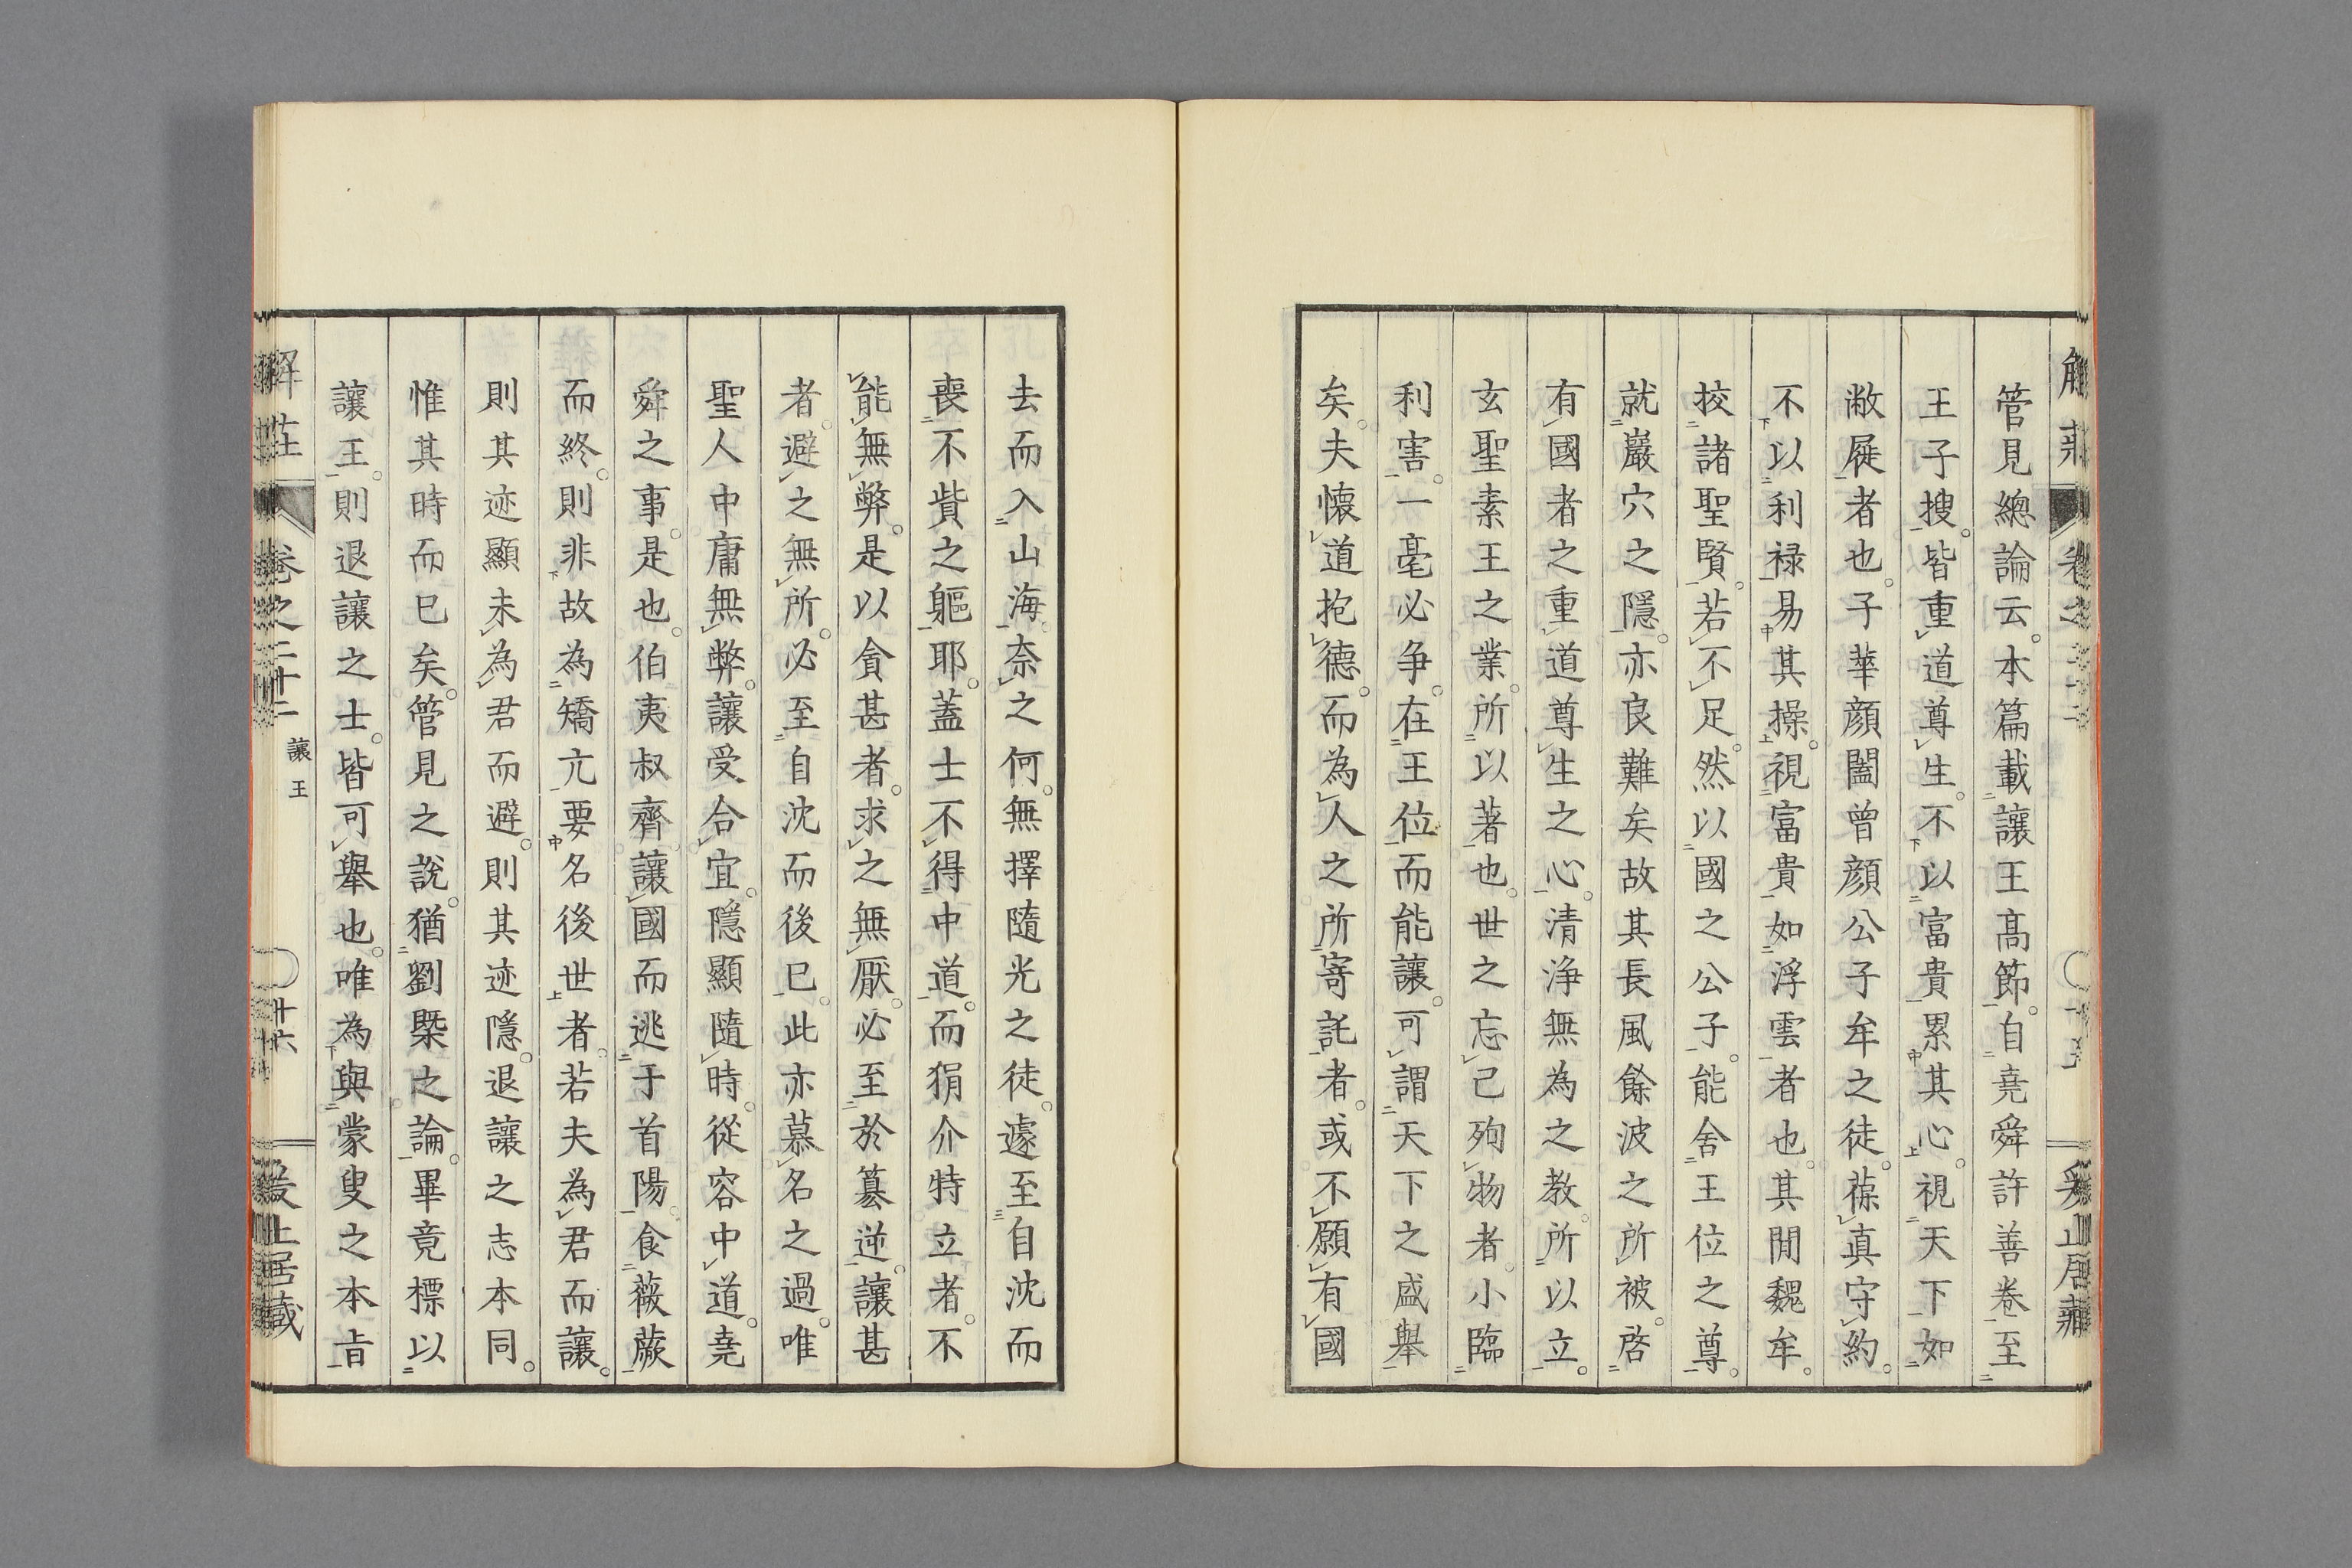 管見總論云本篇載讓王高節自堯舜許善卷至
王子搜皆重道尊生不以富貴累其心視天下如
敝屣者也子華顔闔曾顔公子牟之徒葆真守約
不以利祿易其操視富貴如浮雲者也其間魏牟
挍諸聖賢若不足然以國之公子能舍王位之尊
就巖穴之隱亦良難矣故其長風餘波之所被啓
有國者之重道尊生之心清淨無為之教所以立
玄聖素王之業所以著也世之忘己殉物者小臨
利害一毫必争在王位而能讓可謂天下之盛舉
矣夫懷道抱德而為人之所寄託者或不願有國
去而入山海奈之何無擇隨光之徒遽至自沈而
喪不貲之軀耶蓋士不得中道而狷介特立者不
能無弊是以貪甚者求之無厭必至於篡逆讓甚
者避之無所必至自沈而後已此亦慕名之過唯
聖人中庸無弊讓受合宜隱顯隨時從容中道堯
舜之事是也伯夷叔齊讓國而逃于首陽食薇蕨
而終則非故為矯亢要名後世者若夫為君而讓
則其迹顯未為君而避則其迹隱退讓之志本同
惟其時而已矣管見之說猶劉槩之論畢竟標以
讓王則退讓之士皆可舉也唯為與蒙叟之本旨
解莊
卷之二十二
讓王
十六
爰止居藏